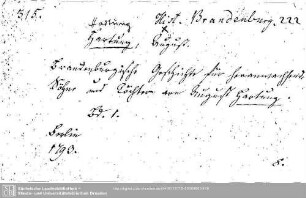 315.
Hist. Brandenburg. 222
Hartung
Hartung, August.
Brandenburgische Geschichte für heranwachsende
Söhne und Töchter von August Hartung.
Bd. 1.
Berlin
1793.
8.
Sächsische Landesbibliothek -
Staats- und Universitätsbibliothek Dresden